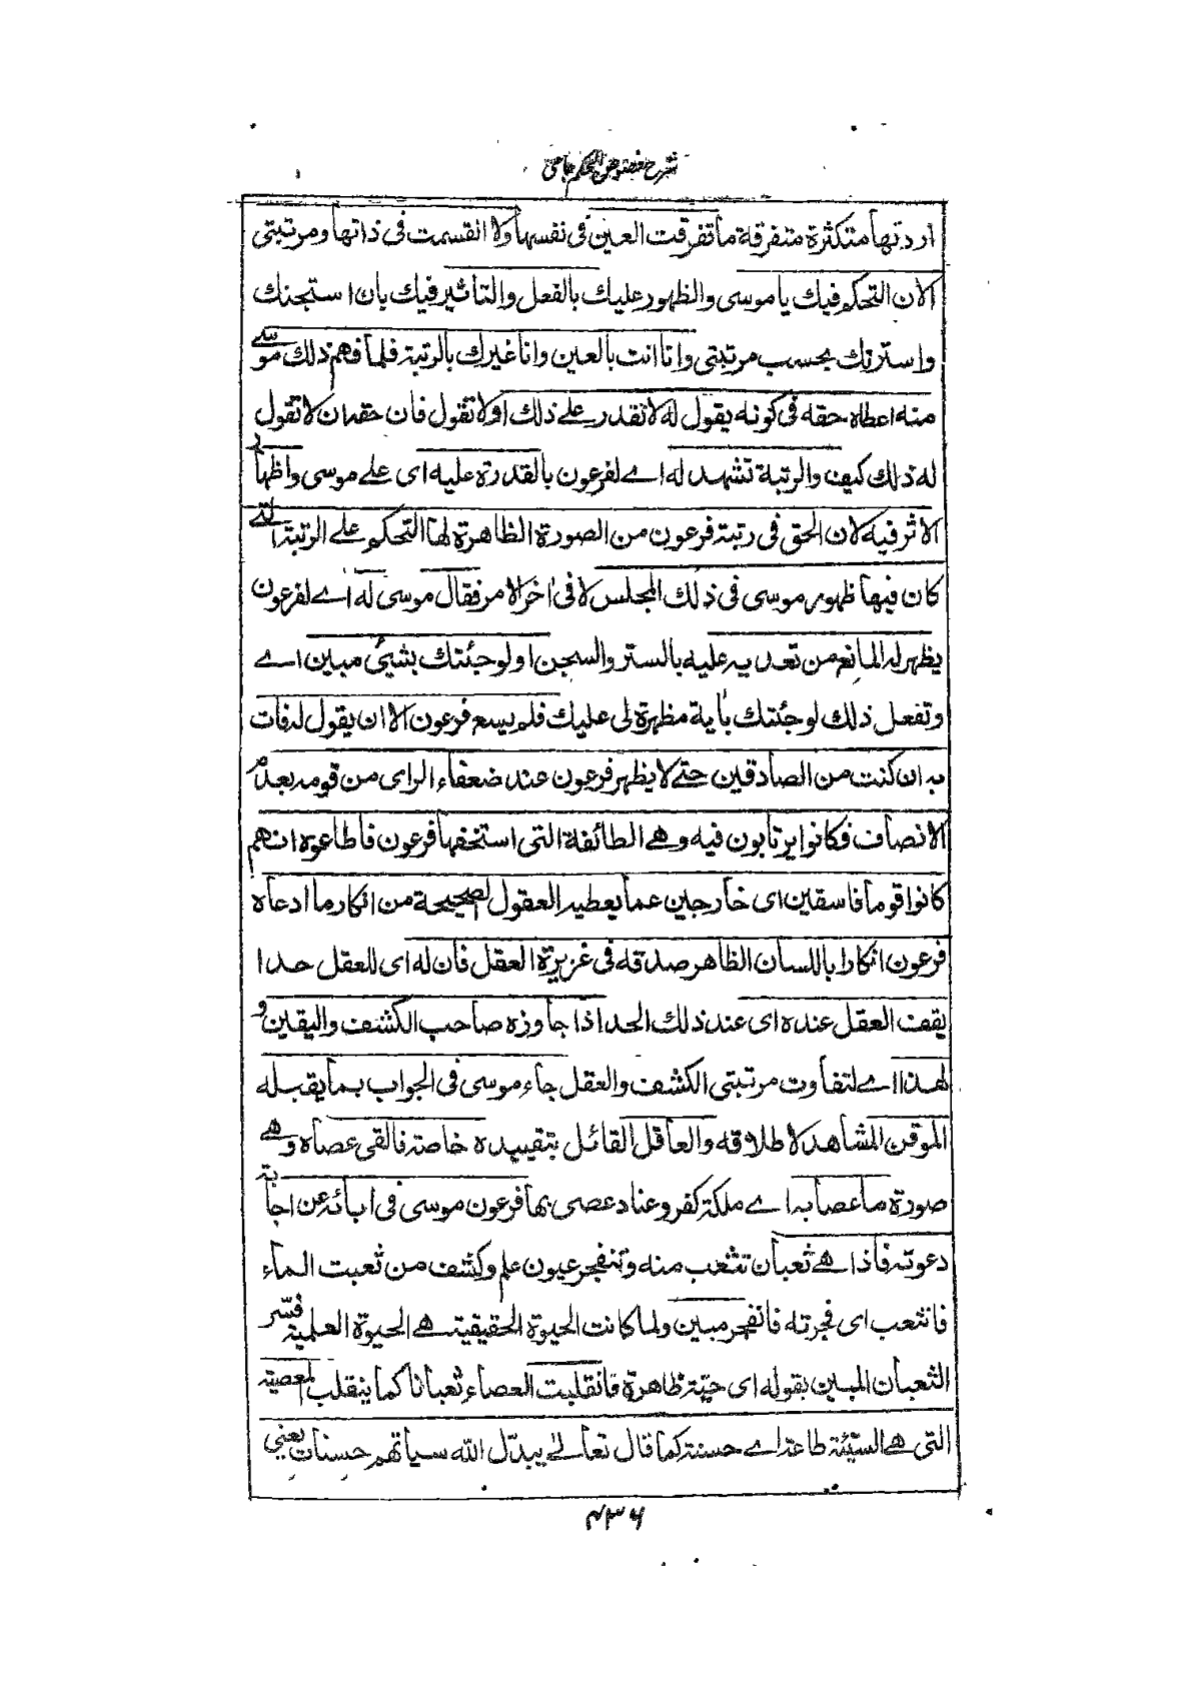 شرح فصوص الحكم جامي
اردتها متكثرة متفرقة ما تفرقت العين في نفسها ولا انقسمت في ذاتها ومرتبتي
الان التحكم فيك يا موسى والظهور عليك بالفعل والتاثير فيك بان استجنك
واسترتك بحسب مرتبتي وانا انت بالعين وانا غيرك بالرتبة فلما فهم ذلك موسى
منه اعطاه حقه في كونه يقول له لا تقدر على ذلك او لا تقول فان حقه ان لا تقول
له ذلك كيف والرتبة تشهد له اے لفرعون بالقدرة عليه اى على موسى واظهار
الاثر فيه لان الحق في رتبة فرعون من الصورة الظاهرة لها التحكم على الرتبة التي
كان فيها ظهور موسى في ذلك المجلس لا في اخر الامر فقال موسى له اے لفرعون
يظهر له المانع من تعديه عليه بالستر والسجن اولو جئتك بشيئ مبين اے
وتفعل ذلك لو جئتك باية مظهرة لى عليك فلم يسع فرعون الا ان يقول له فات
به ان كنت من الصادقين حتى لا يظهر فرعون عند ضعفاء الراى من قومه بعدم
الانصاف فكانوا يرتابون فيه وهى الطائفة التى استخفها فرعون فاطاعوه انهم
كانوا قوما فاسقين اى خارجين عما يعطيه العقول الصحيحة من انكار ما ادعاه
فرعون انكارا باللسان الظاهر صدقه في غزيرة العقل فان له اى للعقل حدا
يقف العقل عنده اى عند ذلك الحد اذا جاوزه صاحب الكشف واليقين و
لهذا اے لتفاوت مرتبتى الكشف والعقل جاء موسى في الجواب بما يقبله
الموقن المشاهد لاطلاقه والعاقل القائل بتقييده خاصة فالقى عصاه وهى
صورة ما عصا به اے ملكة كفر وعناد عصى بها فرعون موسى في ابائه عن اجابة
دعوته فاذا هى ثعبان تثعب منه وتنفجر عيون علم وكشف من ثعبت الماء
فانثعب اى فجرته فانفجر مبين ولما كانت الحيوة الحقيقية هى الحيوة العلمية فسّر
الثعبان المبين بقوله اى حيّة ظاهرة فانقلبت العصاء ثعبانا كما ينقلب المعصية
التى هى السيّئة طاعة اے حسنة كما قال تعالى يبدّل الله سياتهم حسنات يعني
۴۳۶